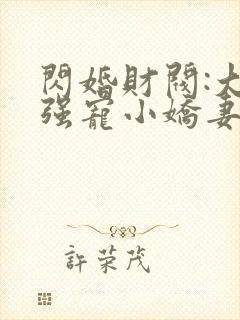 閃婚財閥:大
强寵小嬌妻
許荣茂